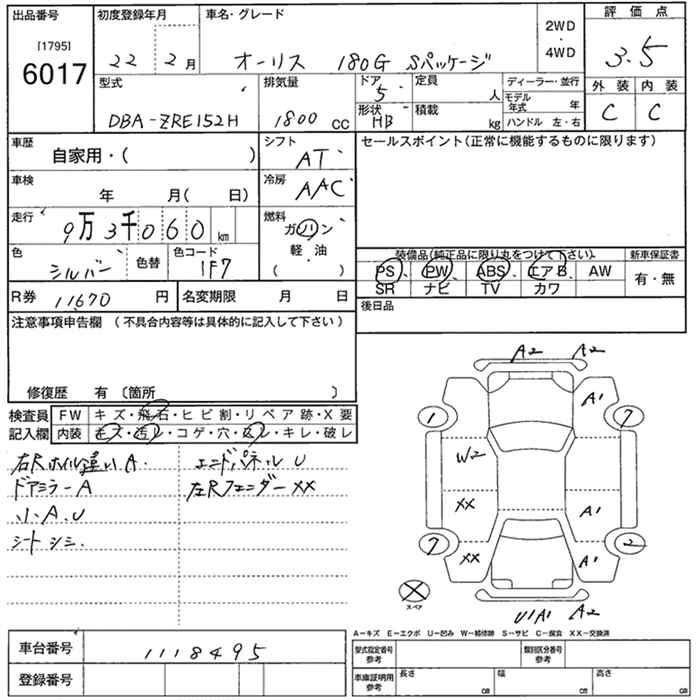 出品番号
[1795]
6017
初度登録年月
22 2月
車名・グレード
オーリス 180G Sパッケージ
2WD
・
4WD
評価点
3.5
外装 内装
C C
型式
DBA-ZRE152H
排気量
1800 CC
ドア
5
形状
HB
定員
人
積載
kg
ディーラー・並行
モデル年式 年
ハンドル 左・右
車歴
自家用・( )
シフト
AT
車検
年 月( 日)
冷房
AAC
走行
9万3千060 km
燃料
ガソリン
軽油
( )
色
シルバー
色替
色コード
1F7
R券 11670 円
名変期限 月 日
セールスポイント(正常に機能するものに限ります)
装備品(純正品に限り丸をつけて下さい)
新車保証書
PS PW ABS エアB AW
有・無
SR ナビ TV カワ
後日品
注意事項申告欄 (不具合内容等は具体的に記入して下さい)
修復歴 有 〔箇所 〕
検査員
記入欄
FW キズ・飛石・ヒビ割・リペア跡・X要
内装 キズ・汚レ・コゲ・穴・スレ・キレ・破レ
右Rホイル違いA.
エンドパネルU
ドアミラーA
左RフェンダーXX
小A.U
シートシミ
A2 A2
1
A1
7
W2
XX
A1
7
XX
A1
2
スペア
U1A1 A2
A−キズ E−エクボ U−凹み W−補修跡 S−サビ C−腐食 XX−交換済
車台番号
1118495
登録番号
型式指定番号
参考
類別区分番号
参考
車庫証明用
参考
長さ cm
幅 cm
高さ cm